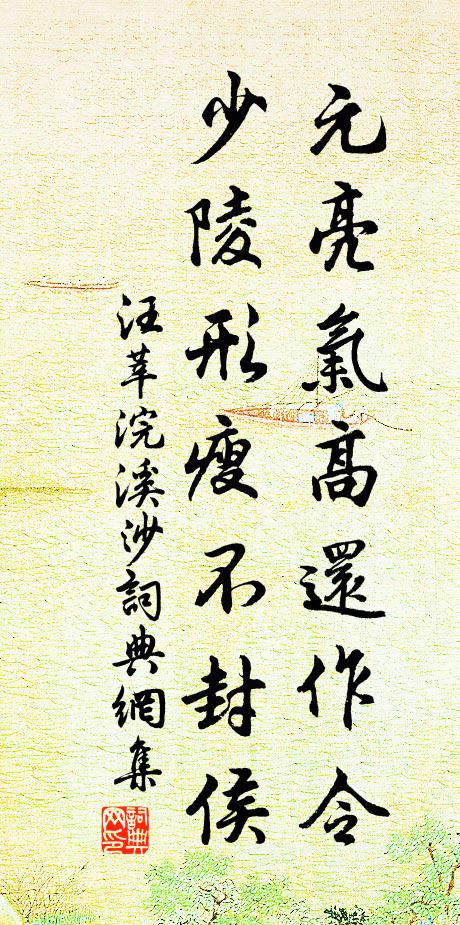 元亮氣高還作令
少陵形瘦不封侯
汪莘浣溪沙詞典網集
詞典网印